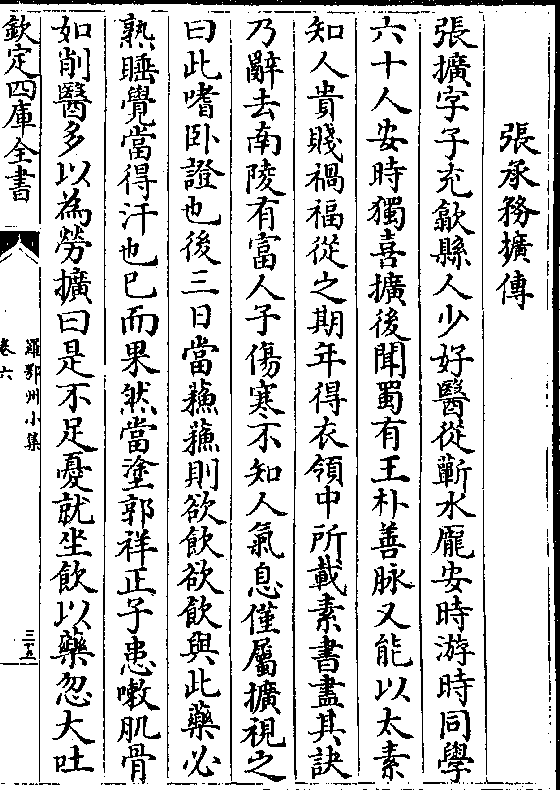 張承務擴傳
張擴字子充歙縣人少好醫從蘄水龐安時游時同學
六十人安時獨喜擴後聞蜀有王朴善脉又能以太素
知人貴賤禍福從之期年得衣領中所載素書盡其訣
乃辭去南陵有富人子傷寒不知人氣息僅屬擴視之
曰此嗜卧證也後三日當蘇蘇則欲飲欲飲與此藥必
熟睡覺當得汗也已而果然當塗郭祥正子患嗽肌骨
如削醫多以為勞擴曰是不足憂就坐飲以藥忽大吐
欽定四庫全書
羅鄂州小集
卷六
三十五